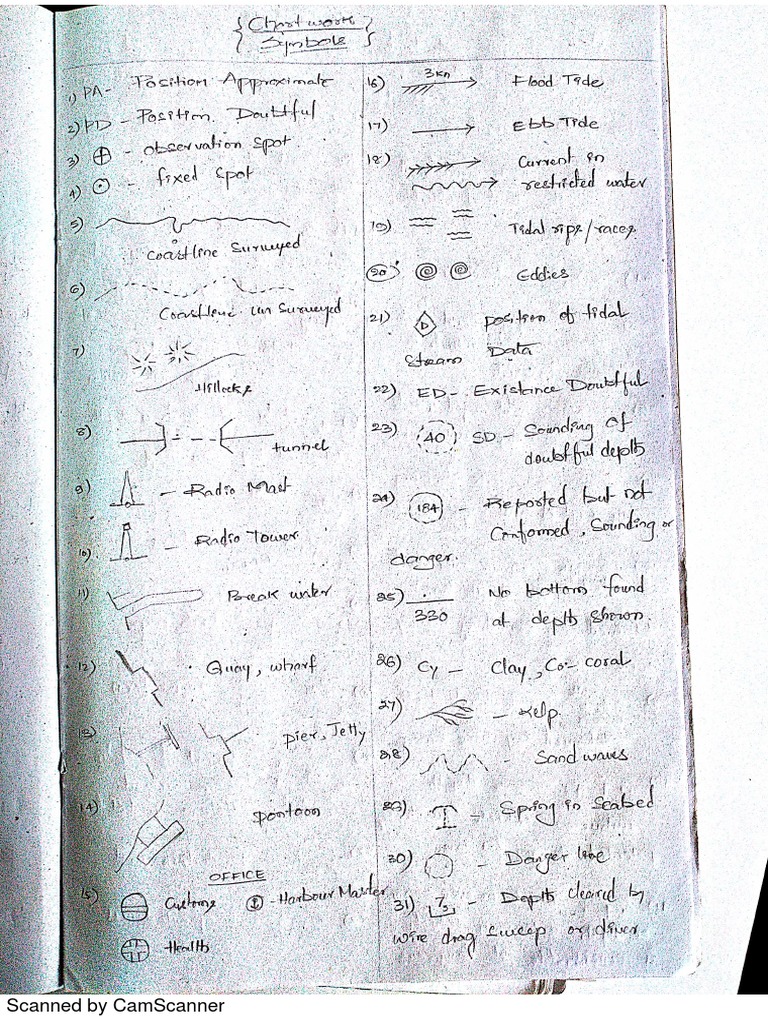 Chart work
Symbols
1) PA- Position Approximate
2) PD - Position Doubtful
3) - observation spot
4) - fixed spot
5)
Coastline Surveyed
6)
Coastline un Surveyed
7)
Hillocks
8)
tunnel
9) - Radio Mast
10) - Radio Tower
11) Break water
12) Quay, wharf
13) pier, Jetty
14) pontoon
OFFICE
15) Customs - Harbour Master
Health
16) 3kn Flood Tide
17) Ebb Tide
18) Current in
restricted water
19) Tidal rips/races
20) Eddies
21) D position of tidal
stream Data
22) ED- Existance Doubtful
23) 40 SD - Sounding of
doubtful depth
24) 184 - Reported but not
Conformed, Sounding or
danger.
25) No bottom found
330 at depth shown.
26) Cy - Clay, Co- coral
27) - Kelp
28) - Sand waves
29) - Spring in Seabed
30) - Danger line
31) 7₃ - Depth cleared by
wire drag sweep or diver
Scanned by CamScanner